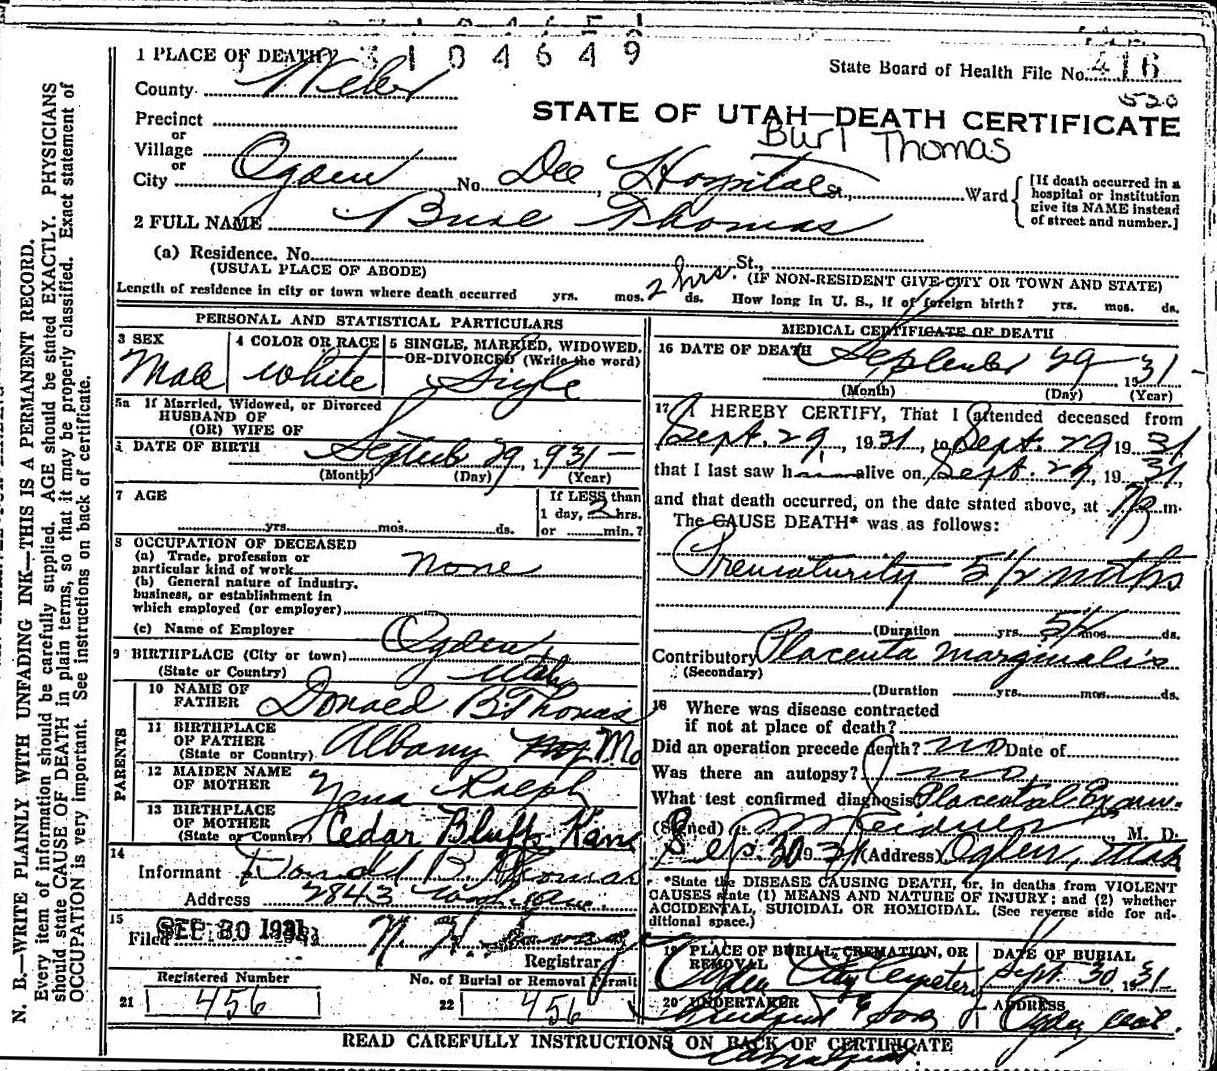 3104649
1 PLACE OF DEATH
State Board of Health File No. 416
County Weber
530
STATE OF UTAH—DEATH CERTIFICATE
Precinct
or
Burl Thomas
Village
or
City Ogden No. Dee Hospital St., Ward
[If death occurred in a hospital or institution give its NAME instead of street and number.]
2 FULL NAME Burl Thomas
(a) Residence. No. St.,
(USUAL PLACE OF ABODE) (IF NON-RESIDENT GIVE CITY OR TOWN AND STATE)
Length of residence in city or town where death occurred yrs. mos. 2 hrs. ds. How long in U. S., if of foreign birth? yrs. mos. ds.
PERSONAL AND STATISTICAL PARTICULARS
3 SEX Male
4 COLOR OR RACE white
5 SINGLE, MARRIED, WIDOWED, OR DIVORCED (Write the word) Single
5a If Married, Widowed, or Divorced
HUSBAND OF
(OR) WIFE OF
DATE OF BIRTH September 29, 1931
(Month) (Day) (Year)
7 AGE
yrs. mos. ds.
If LESS than
1 day, 2 hrs.
or min.?
8 OCCUPATION OF DECEASED
(a) Trade, profession or
particular kind of work None
(b) General nature of industry,
business, or establishment in
which employed (or employer)
(c) Name of Employer
9 BIRTHPLACE (City or town) Ogden,
(State or Country) Utah
PARENTS
10 NAME OF
FATHER Donald B. Thomas
11 BIRTHPLACE
OF FATHER
(State or Country) Albany Mo
12 MAIDEN NAME
OF MOTHER Ralph
13 BIRTHPLACE
OF MOTHER
(State or Country) Cedar Bluffs Kans
14
Informant Donald B. Thomas
Address 2843 Wash. Ave.
15
Filed SEP 30 1931
Registrar
Registered Number
21 456
No. of Burial or Removal Permit
22 456
MEDICAL CERTIFICATE OF DEATH
16 DATE OF DEATH September 29 1931
(Month) (Day) (Year)
17 I HEREBY CERTIFY, That I attended deceased from
Sept. 29, 1931, to Sept. 29 1931
that I last saw him alive on Sept. 29, 1931,
and that death occurred, on the date stated above, at m.
The CAUSE DEATH* was as follows:
Prematurity 5 1/2 months
(Duration yrs. 5 1/2 mos. ds.
Contributory Placenta marginalis
(Secondary)
(Duration yrs. mos. ds.
18 Where was disease contracted
if not at place of death?
Did an operation precede death? no Date of
Was there an autopsy? no
What test confirmed diagnosis Placental Exam.
(Signed) M. D.
Sep. 30 1931 (Address) Ogden, Utah
*State the DISEASE CAUSING DEATH, or, in deaths from VIOLENT
CAUSES state (1) MEANS AND NATURE OF INJURY; and (2) whether
ACCIDENTAL, SUICIDAL OR HOMICIDAL. (See reverse side for ad-
ditional space.)
19 PLACE OF BURIAL, CREMATION, OR
REMOVAL Ogden City Cemetery
DATE OF BURIAL
Sept 30 1931
20 UNDERTAKER & Sons
ADDRESS
Ogden, Utah.
READ CAREFULLY INSTRUCTIONS ON BACK OF CERTIFICATE
N. B.—WRITE PLAINLY WITH UNFADING INK—THIS IS A PERMANENT RECORD.
Every item of information should be carefully supplied. AGE should be stated EXACTLY. PHYSICIANS
should state CAUSE OF DEATH in plain terms, so that it may be properly classified. Exact statement of
OCCUPATION is very important. See instructions on back of certificate.